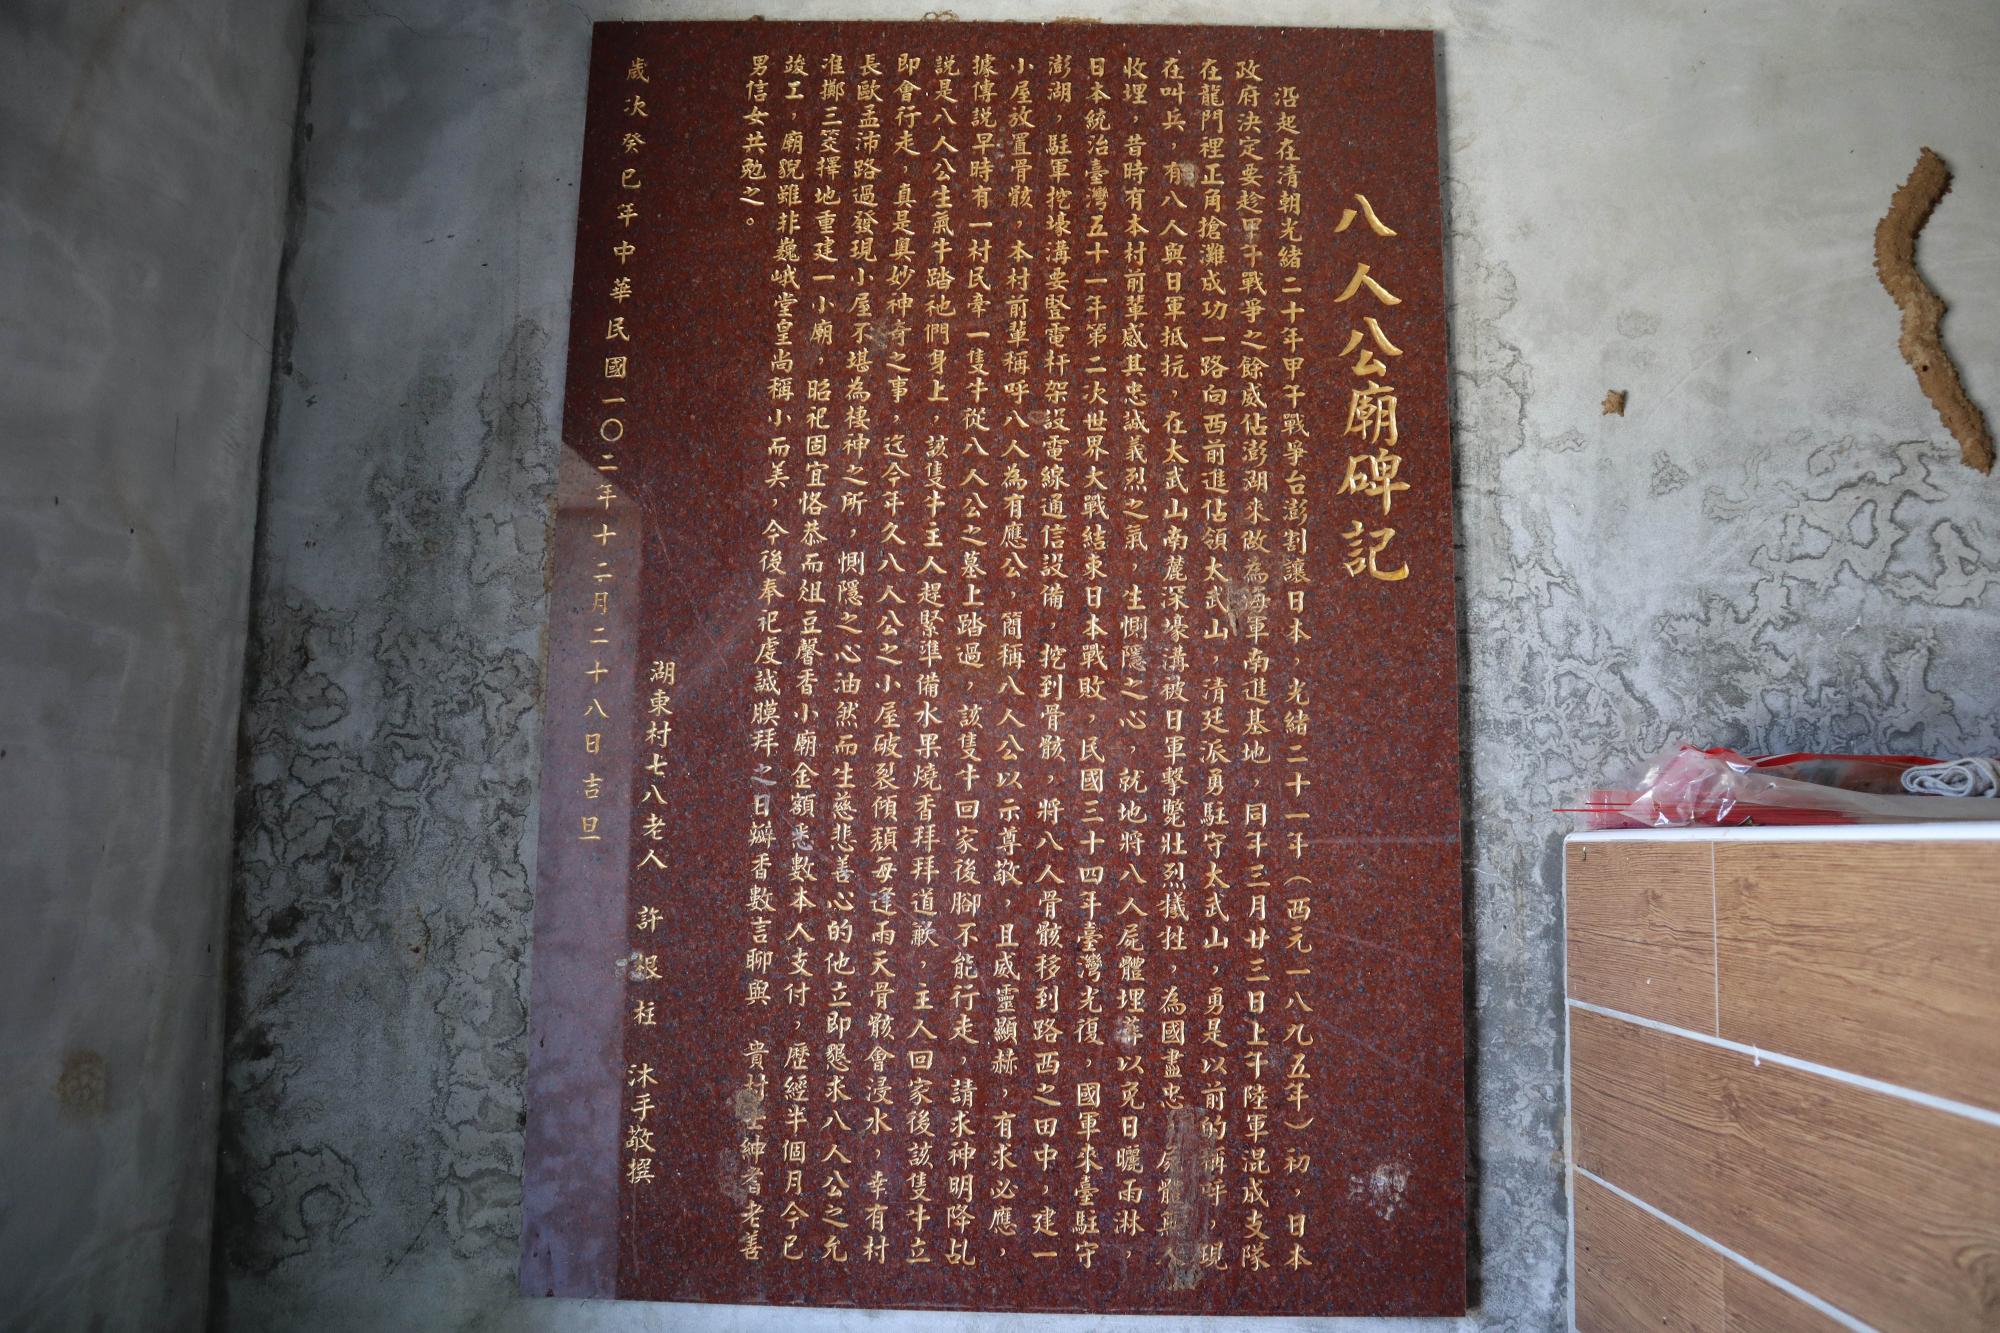 八人公廟碑記
沿起在清朝光緒二十年甲午戰爭台澎割讓日本，光緒二十一年（西元一八九五年）初，日本
政府決定要趁甲午戰爭之餘威佔澎湖來做為海軍南進基地，同年三月廿三日上午陸軍混成支隊
在龍門裡正角搶灘成功一路向西前進佔領太武山，清廷派勇駐守太武山，勇是以前的稱呼，現
在叫兵，有八人與日軍抵抗，在太武山南麓深壕溝被日軍擊斃壯烈犧牲，為國盡忠，屍體無人
收埋，昔時有本村前輩感其忠誠義烈之氣，生惻隱之心，就地將八人屍體埋葬以免日曬雨淋，
日本統治臺灣五十一年第二次世界大戰結束日本戰敗，民國三十四年臺灣光復，國軍來臺駐守
澎湖，駐軍挖壕溝要豎電杆架設電線通信設備，挖到骨骸，將八人骨骸移到路西之田中，建一
小屋放置骨骸，本村前輩稱呼八人為有應公，簡稱八人公以示尊敬，且威靈顯赫，有求必應，
據傳說早時有一村民牽一隻牛從八人公之墓上踏過，該隻牛回家後腳不能行走，請求神明降乩
說是八人公生氣牛踏祂們身上，該隻牛主人趕緊準備水果燒香拜拜道歉，主人回家後該隻牛立
即會行走，真是奧妙神奇之事，迄今年久八人公之小屋破裂傾頹每逢雨天骨骸會浸水，幸有村
長歐孟沛路過發現小屋不堪為棲神之所，惻隱之心油然而生慈悲善心的他立即懇求八人公之允
准擲三筊擇地重建一小廟，昭祀固宜恪恭而俎豆馨香小廟金額悉數本人支付，歷經半個月今已
竣工，廟貌雖非巍峨堂皇尚稱小而美，今後奉祀虔誠膜拜之日瓣香數言聊與　貴村士紳耆老善
男信女共勉之。
湖東村七八老人　許根柱　沐手敬撰
歲次癸巳年中華民國一〇二年十二月二十八日吉旦